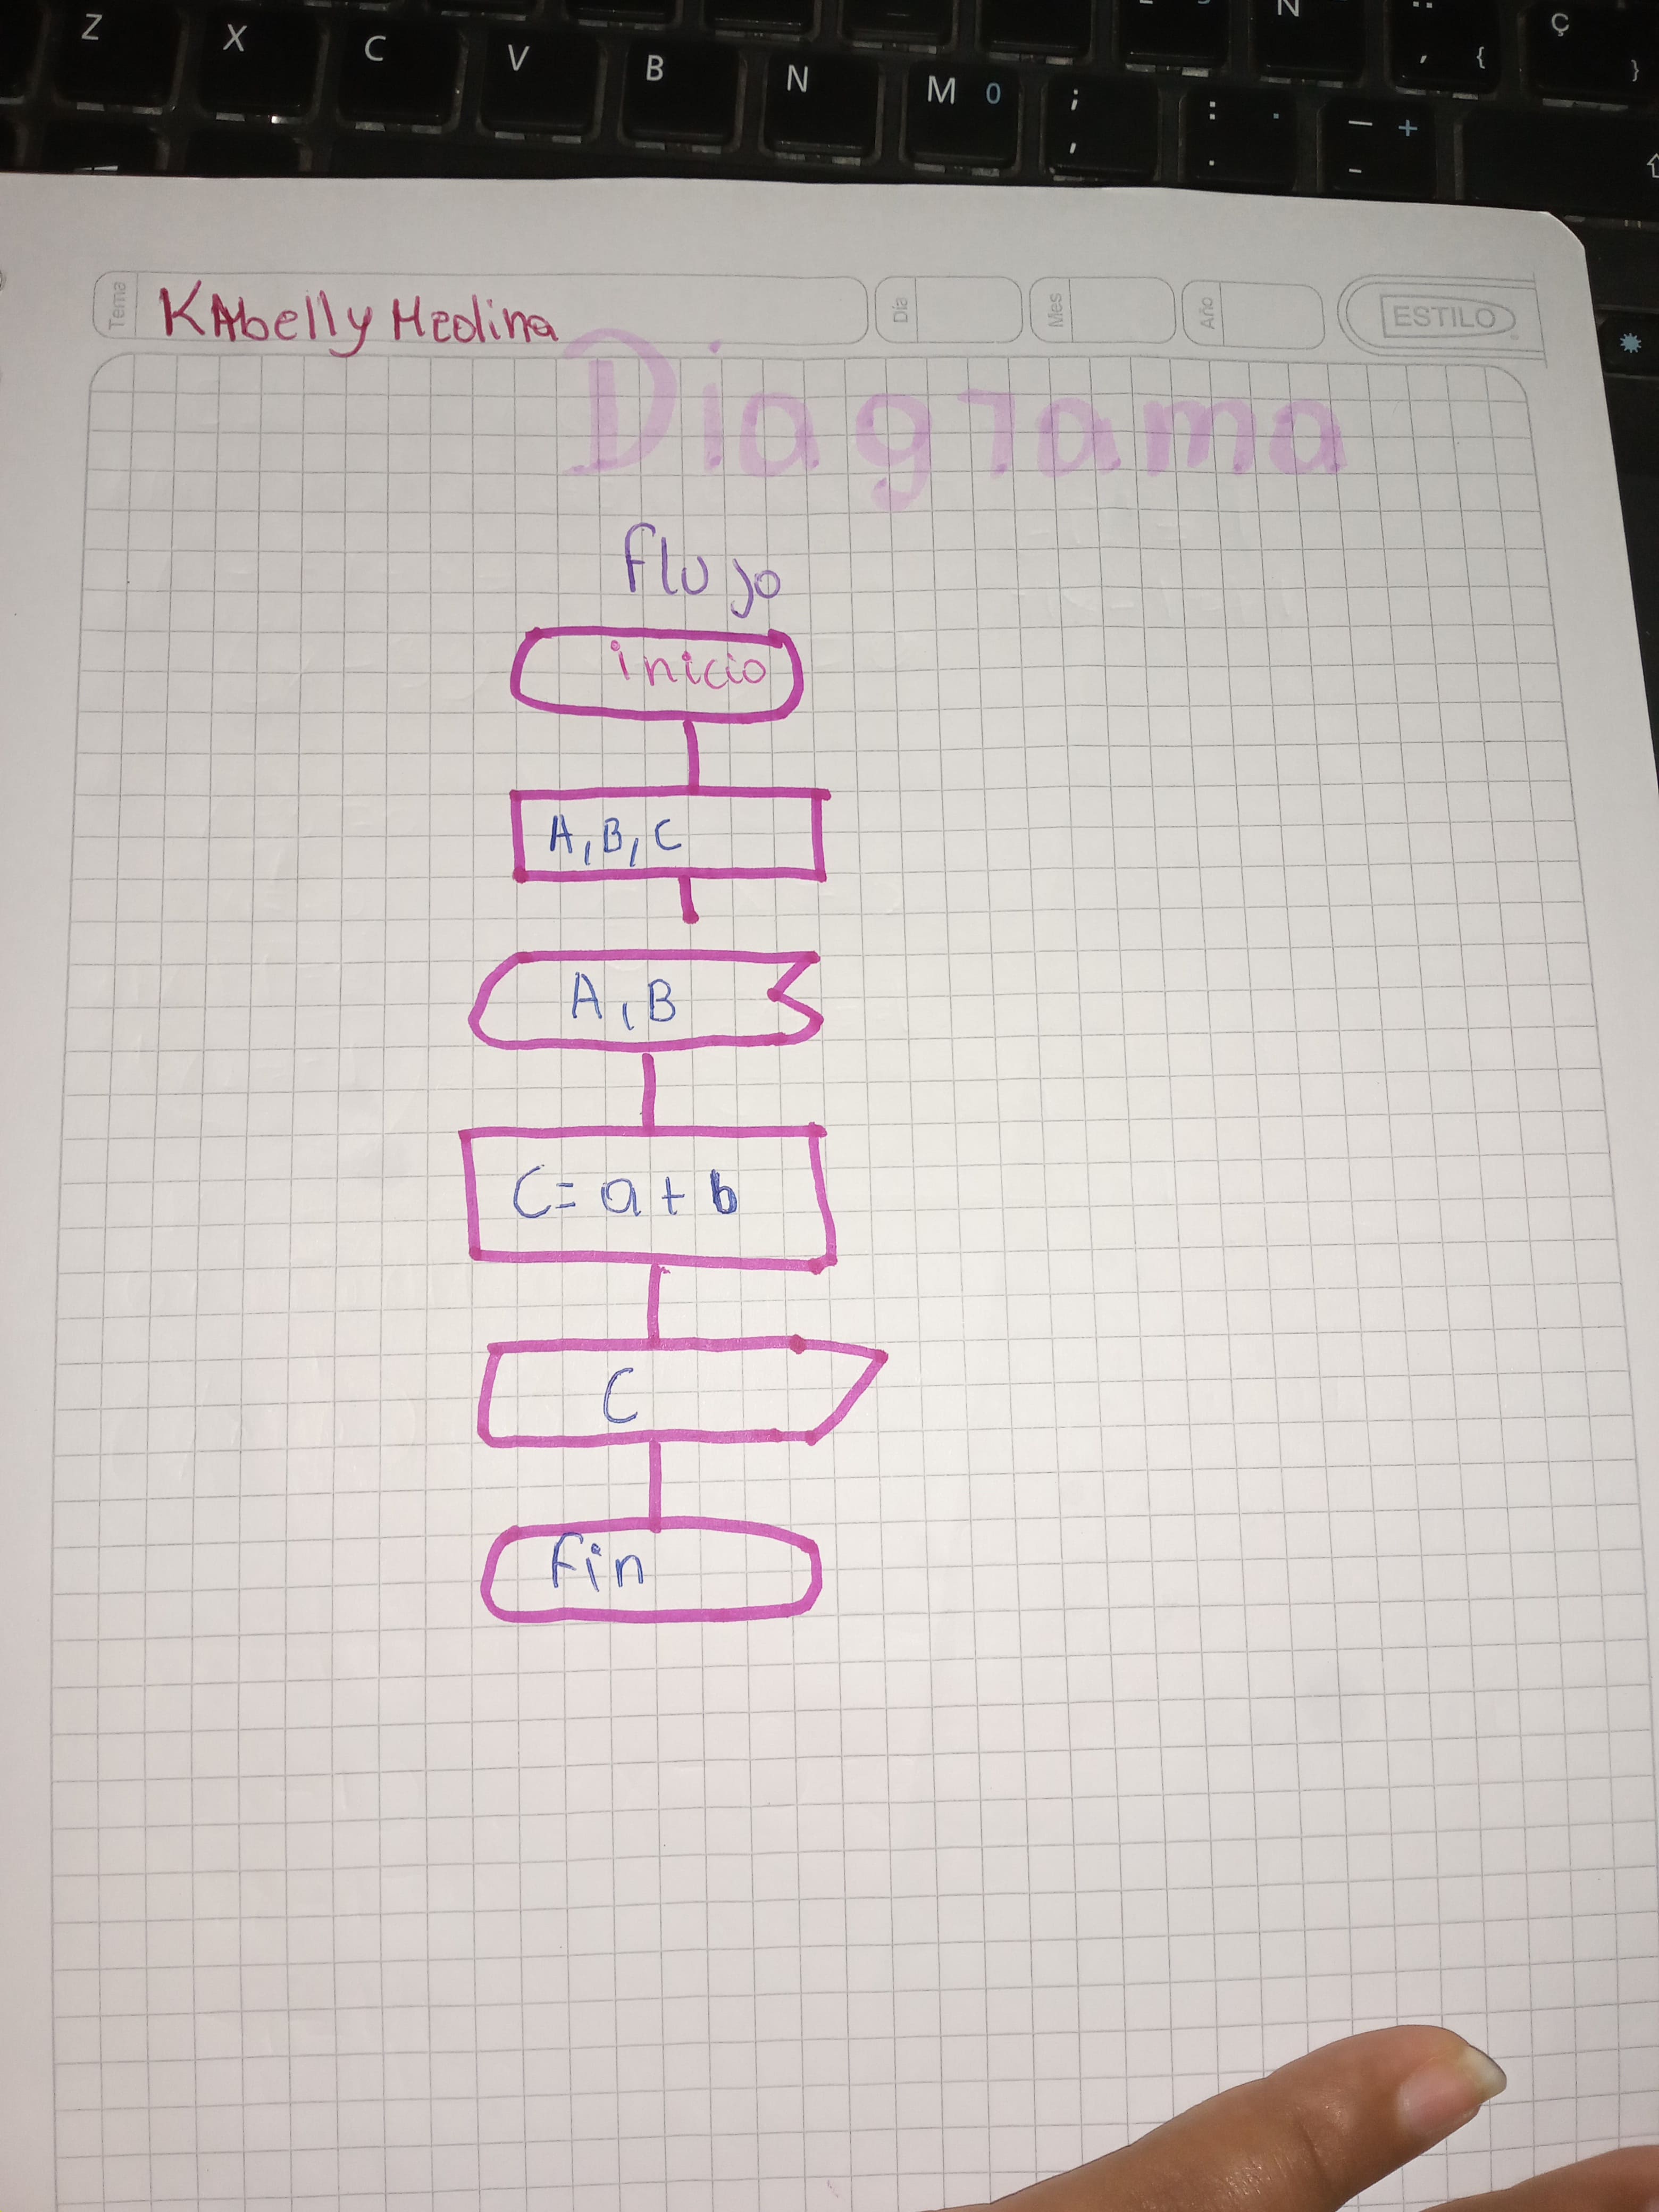 Z X C V B N M 0 ; , : . · — + -
Ñ , { Ç }
Tema KAbelly Medina Día Mes Año ESTILO
Diagrama
flujo
inicio
A, B, C
A, B
C= a + b
C
Fin